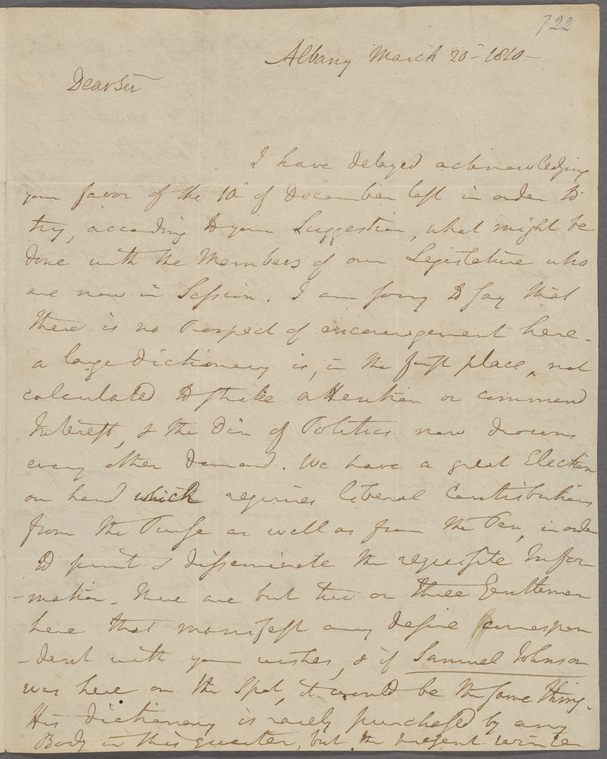 722
Albany March 20th 1810 -
Dear Sir
I have delayed acknowledging
your favor of the 10th of December last in order to
try, according to your Suggestion, what might be
done with the Members of our Legislature who
are now in Session. I am sorry to say that
there is no Prospect of encouragement here -
a large dictionary is, in the first place, not
calculated to strike attention or command
Interest, & the Din of Politics now drowns
every other demand. We have a great Election
on hand which requires liberal Contributions
from the Purse as well as from the Pen, in order
to print & disseminate the requisite Infor-
-mation. There are but two or three Gentlemen
here that manifest any desire correspon
-dent with your wishes, & if Samuel Johnson
was here on the Spot, it would be the same thing.
His dictionary is rarely purchased by any
Body in this quarter, but the present winter